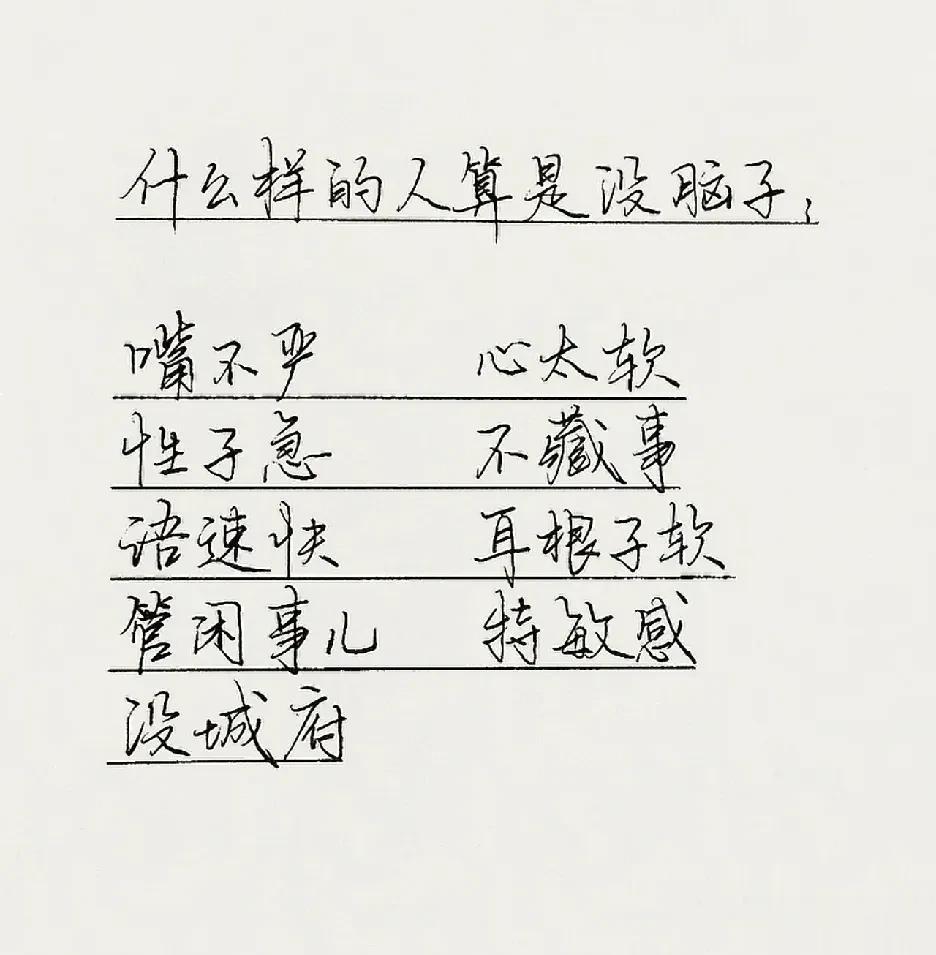 什么样的人算是没脑子;
嘴不严 心太软
性子急 不藏事
语速快 耳根子软
管闲事儿 特敏感
没城府